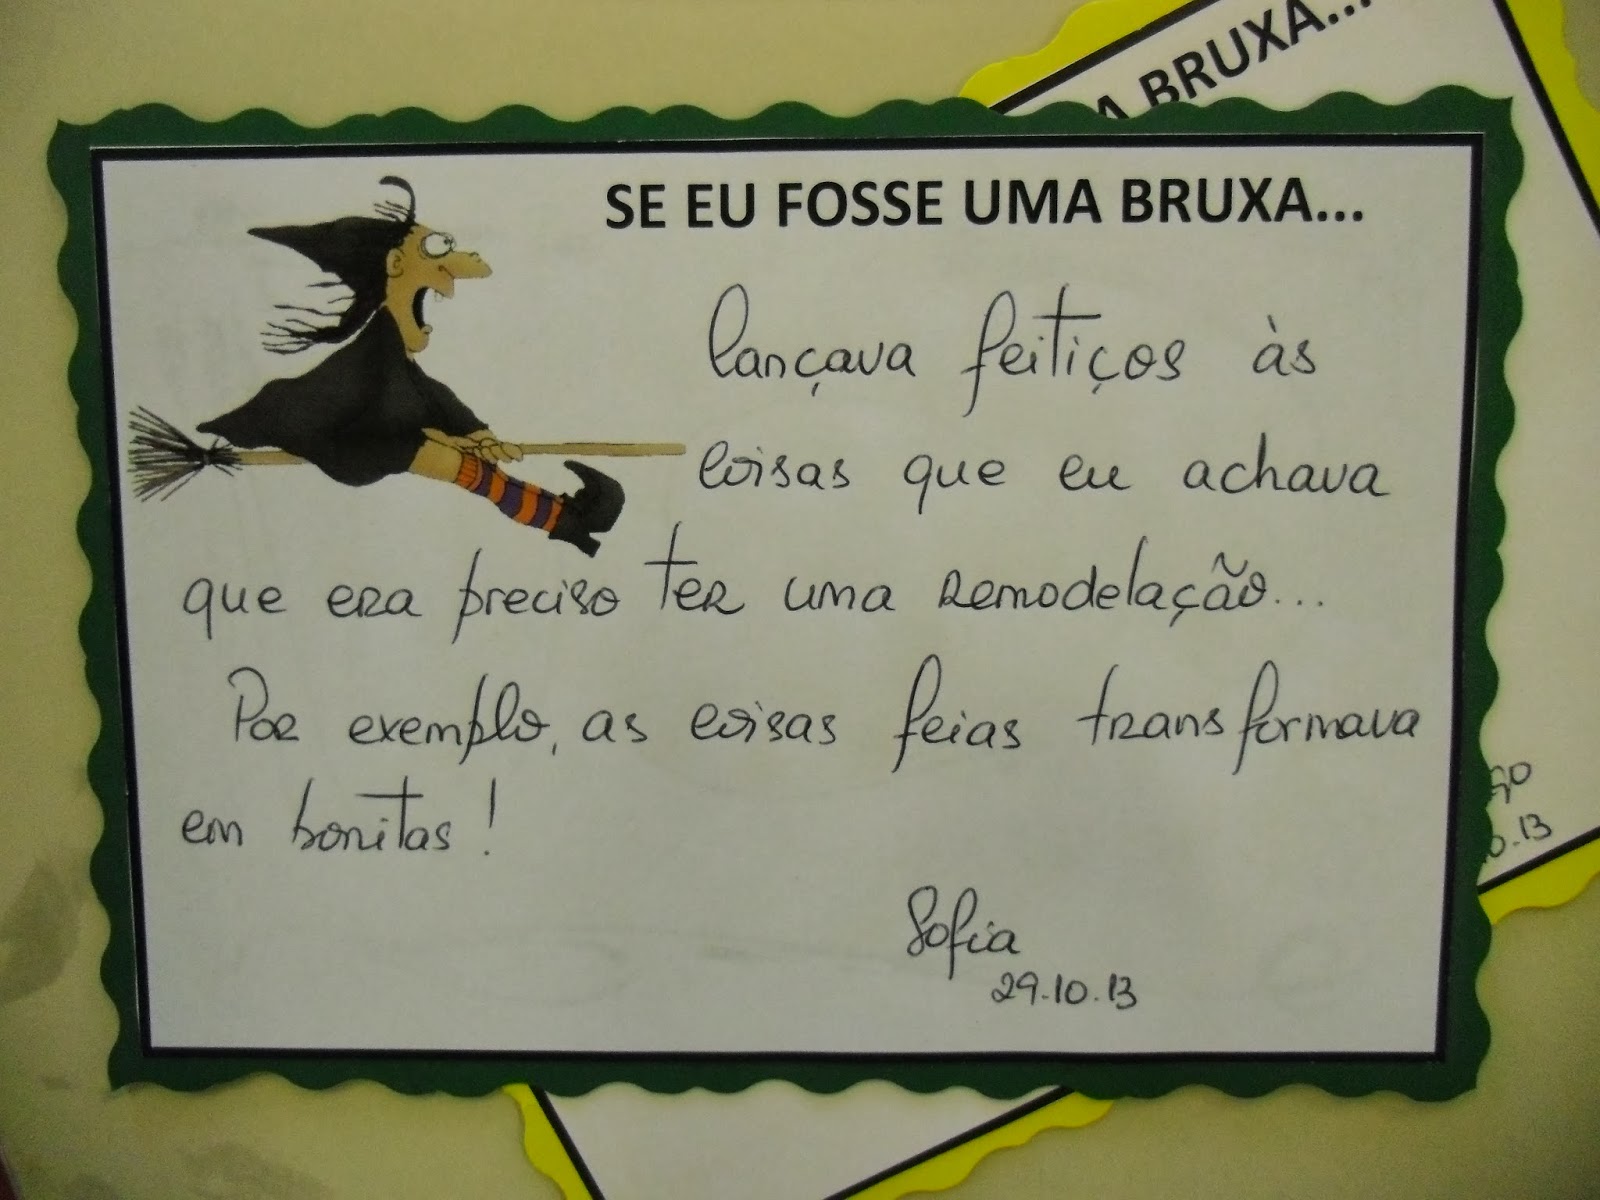 A BRUXA...
SE EU FOSSE UMA BRUXA...
lançava feitiços às
coisas que eu achava
que era preciso ter uma remodelação...
Por exemplo, as coisas feias transformava
em bonitas!
Sofia
29.10.13
GO
0.13